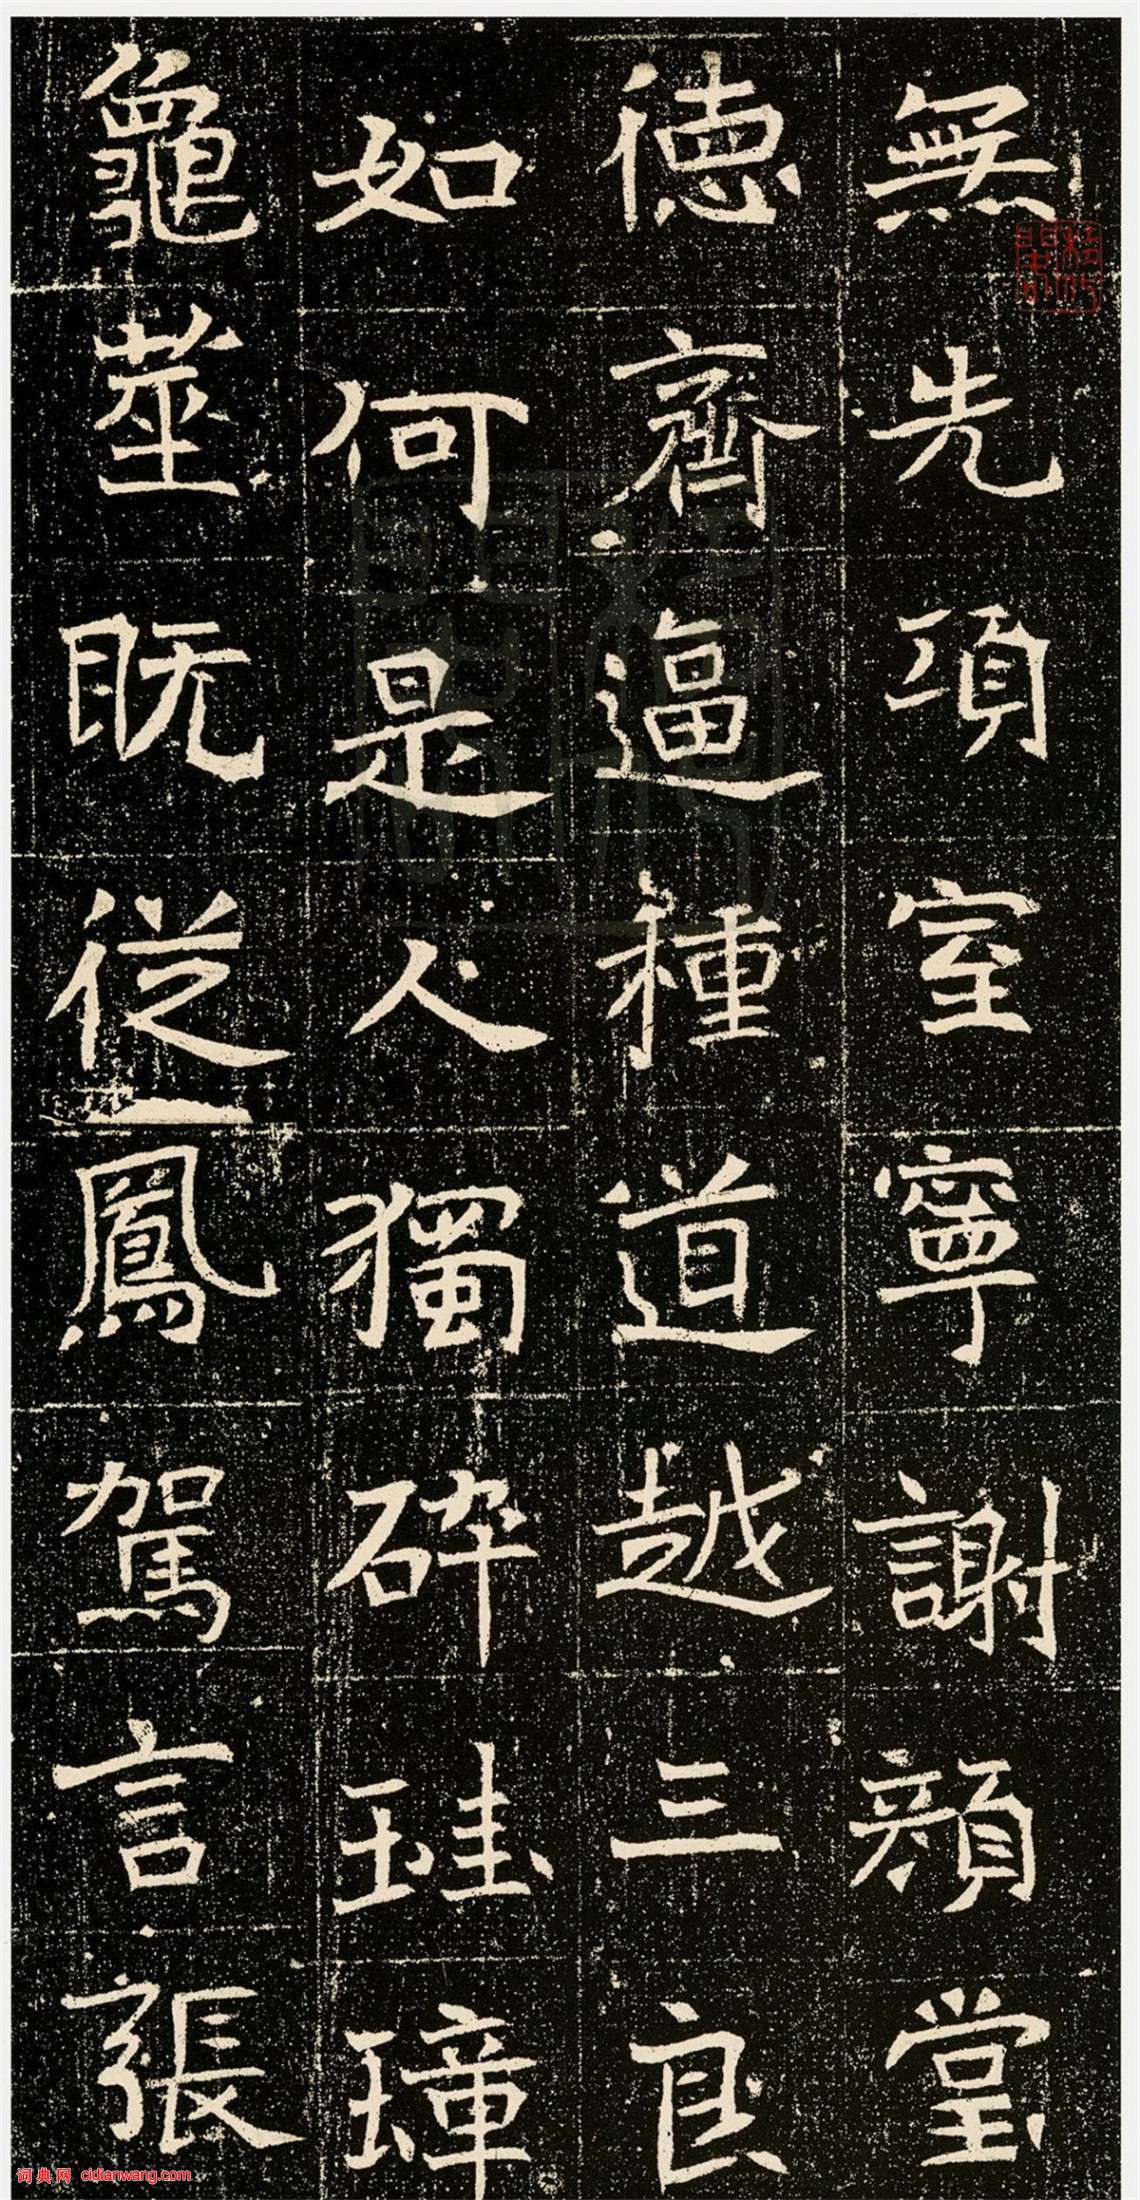 無先項室寧謝顏堂
德齊逼種道越三良
如何是人獨碎珪璋
龜筮既從鳳駕言張
词典网 cidianwang.com